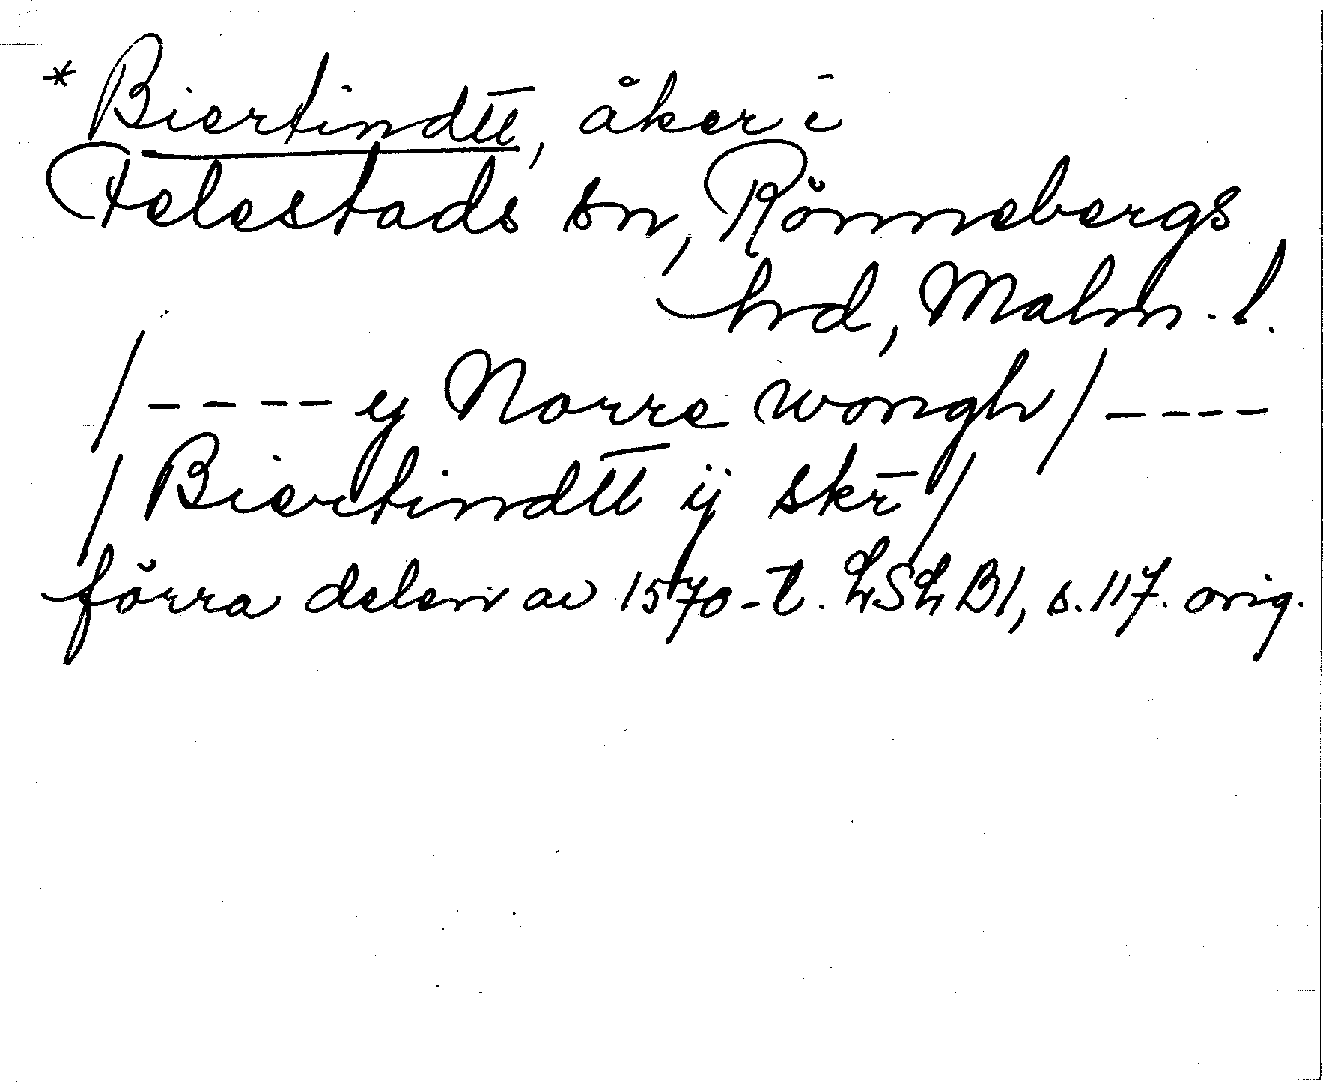 *Biertindtt, åker i
Felestads sn, Rönnebergs
hrd, Malm. l.
/---- y Norre wongh/----
/Biertindtt ij skr̄/
förra delen av 1570-t. LSL B1, s. 117. orig.